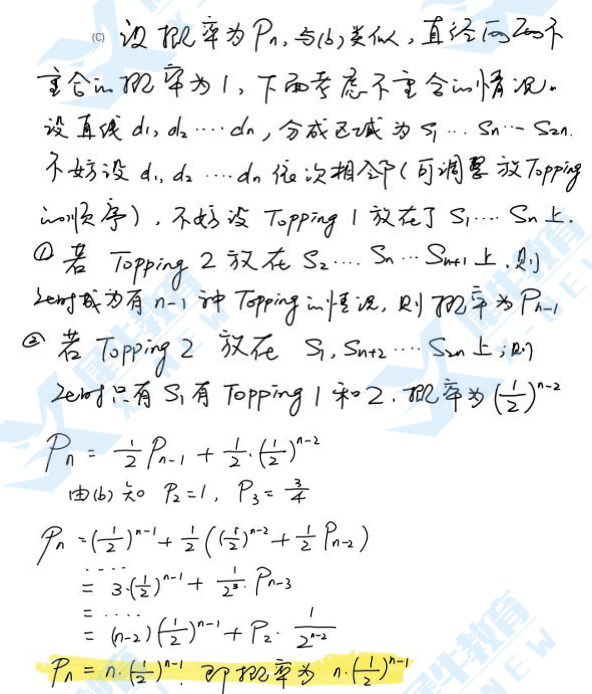 (C) 设概率为Pn,与(b)类似,直径两两不
重合的概率为1,下面考虑不重合的情况.
设直线 d1, d2 ⋯⋯ dn, 分成区域为 S1 ⋯ Sn ⋯ S2n.
不妨设 d1, d2 ⋯⋯ dn 依次相邻(可调整放Topping
的顺序),不妨设 Topping 1 放在了 S1⋯⋯ Sn 上.
① 若 Topping 2 放在 S2⋯⋯ Sn ⋯ Sn+1 上,则
此时成为有 n-1 种 Topping的情况,则概率为 Pn-1
② 若 Topping 2 放在 S1, Sn+2 ⋯⋯ S2n 上,则
此时只有 S1 有 Topping 1 和 2. 概率为 (1/2)^n-2
Pn = 1/2 Pn-1 + 1/2 · (1/2)^n-2
由(b)知 P2 = 1, P3 = 3/4
Pn = (1/2)^n-1 + 1/2 ((1/2)^n-2 + 1/2 Pn-2)
⋯⋯
= 3·(1/2)^n-1 + 1/2^3 · Pn-3
= ⋯⋯
= (n-2)(1/2)^n-1 + P2 · 1/2^n-2
Pn = n·(1/2)^n-1. 即概率为 n·(1/2)^n-1
犀牛教育
X-NEW